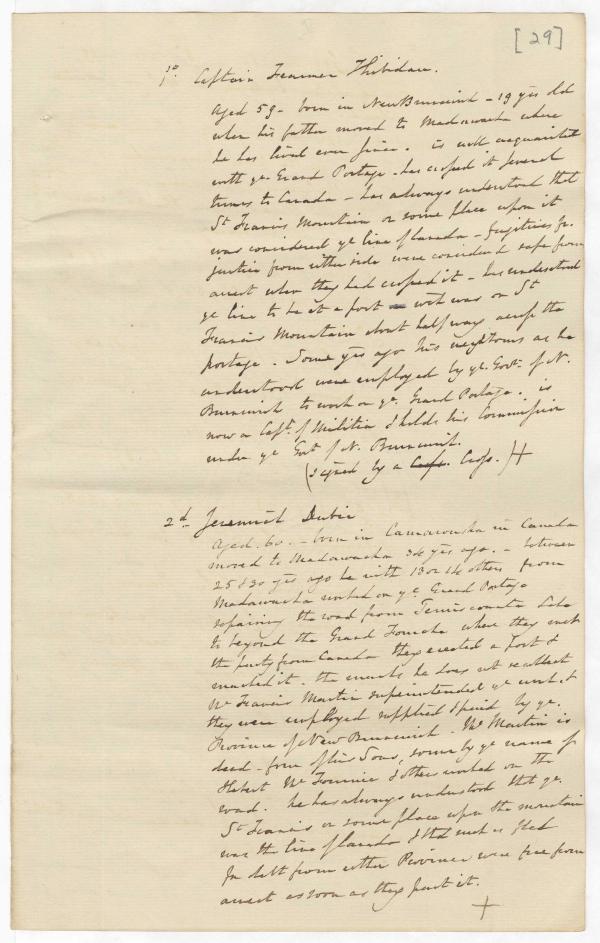 [29]
1st. Captain Firmer Thibidau.
Aged 59 - born in New Brunswick - 19 yrs old
when his father moved to Madawaska where
he has lived ever since. is well acquainted
with ye Grand Portage - has crossed it several
times to Canada - has always understood that
St Francis Mountain or some place upon it
was considered ye line of Canada - fugitives fr.
justice from either side were considered safe from
arrest when they had crossed it - has understood
ye line to be at a post wch was on St
Francis Mountain about half way across the
portage. Some yrs ago his neighbours as he
understood were employed by ye Govt of N.
Brunswick to work on ye Grand Portage. is
now a Capt. of Militia & holds his Commission
under ye Govt of N. Brunswick.
(signed by a Cross. Cross.) +
2d Jeremiah Dubie
Aged 60. - born in Camarouska in Canada
moved to Madawaska 34 yrs ago. - between
25 & 30 yrs ago he with 13 or 14 others from
Madawaska worked on ye Grand Portage
repairing the road from Temiscouata Lake
to beyond the Grand Fourche where they met
the party from Canada they erected a post &
marked it. the marks he does not recollect
Mr Francis Martin superintended ye work &
they were employed supplied & paid by ye
Province of New Brunswick. Mr Martin is
dead - four of his Sons, some by ye name of
Hebert Mr Fournie & others worked on the
road. he has always understood that ye
St Francis or some place upon the mountain
was the line of Canada & that such as fled
In debt from either Province were free from
arrest as soon as they past it.
+